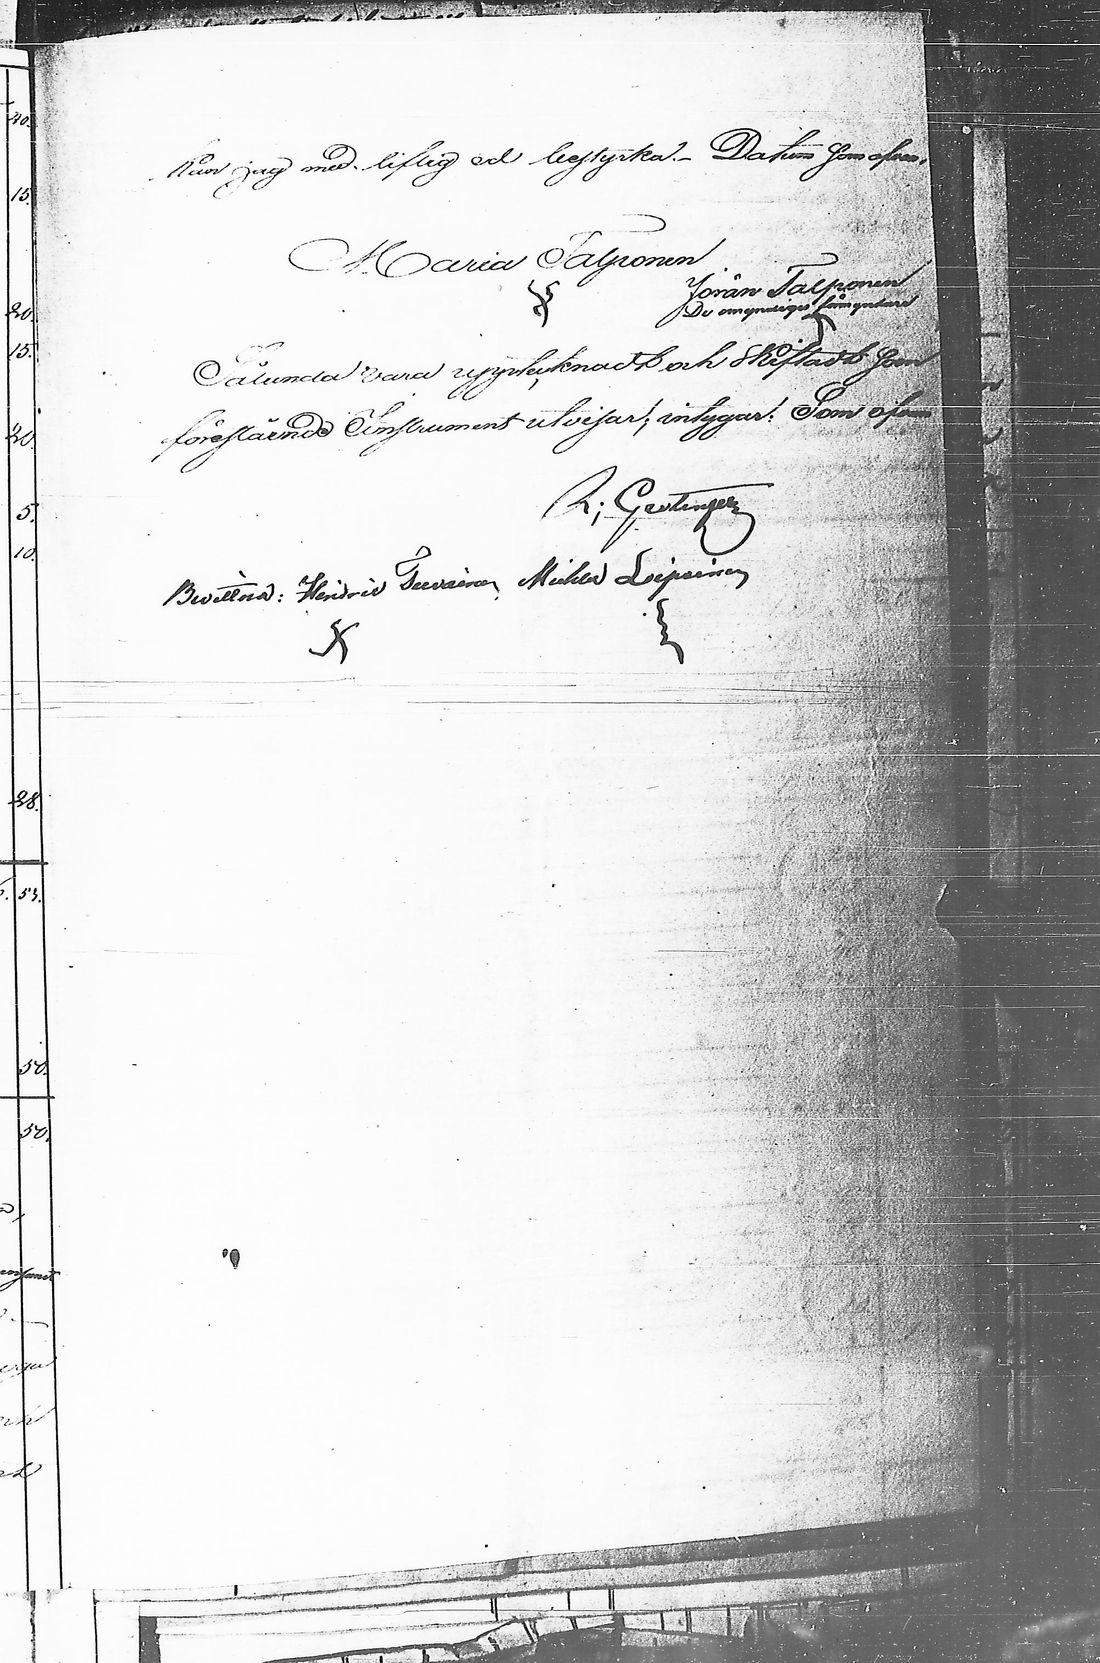 40.
15.
20.
15.
20.
5.
10.
28.
53.
50.
50.
kan jag med liflig ed bestyrka. Datum som ofvan.
Maria Talponen
Jöran Talponen
De omyndigas förmyndare
Sålunda vara uppteknadt och skiftadt som
förestående Instrument utvisar; intygar: Som ofvan
Bevittna: Hendric Michel